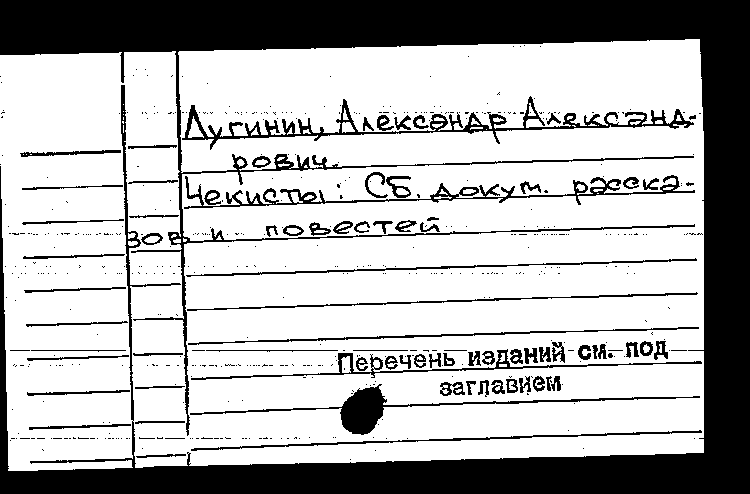 Лугинин, Александр Александ-
рович.
Чекисты: Сб. докум. расска-
зов и повестей
Перечень изданий см. под
заглавием